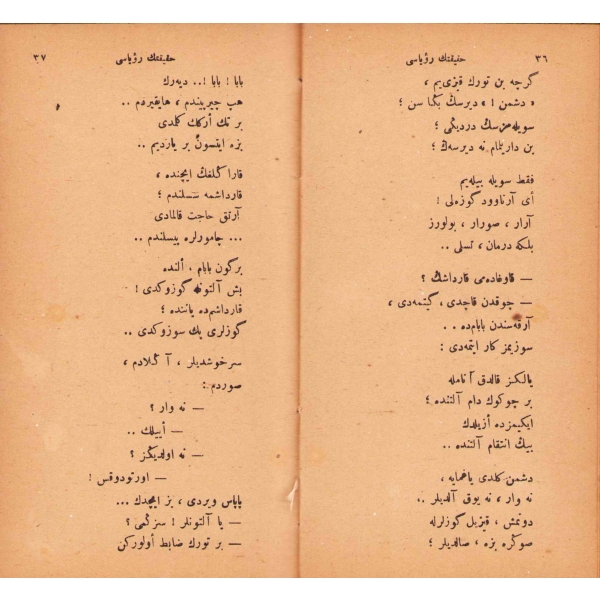 ٣٦
حقيقتك رؤياسى
گرچه بن تورك قيزىيم ،
« دشمن ! » ديرسڭ بڭا سن ؛
سويله‌مزسڭ درديڭى ؛
بن داريلمام نه ديرسه‌ڭ ؛
فقط سويله بيله‌يم
أى آرناوود گوزه‌لى !
آرار ، صورار ، بولورز
بلكه درمان ، تسلى ..
— قاوغاده‌مى قارداشڭ ؟
— چوقدن قاچدى ، گيتمه‌دى ،
آرقه‌سندن بابام‌ده ..
سوزيمز كار ايتمه‌دى :
يالكز قالدق آنامله
بر چوكوك دام آلتنده ؛
ايكيمزده أزيلدك
بيڭ انتقام آلتنده ..
دشمن كلدى يغمايه ،
نه وار ، نه يوق آلديلر ..
دونمش ، قيزيل گوزلرله
صوكره بزه ، صالديلر ؛
٣٧
حقيقتك رؤياسى
بابا ! بابا !.. ديه‌رك
هپ چيرپيندم ، هايقيردم ..
بر تك أركك كلمدى
بزه ايتسون بر يارديم ..
قارا كلغڭ ايچنده ،
قارداشمه سسلندم ؛
آرتق حاجت قالمادى
... چامورلره پيسلندم ..
برگون بابام ، ألنده
بش آلتونله گوزوكدى !
قارداشم‌ده ياننده ؛
گوزلرى پك سوزوكدى ..
سرخوشديلر ، آڭلادم ،
صوردم :
— نه وار ؟
— أييلك ..
— نه اولديڭز ؟
— اورتودوقس !
پاپاس ويردى ، بز ايچدك ...
— يا آلتونلر ! سزڭمى ؟
— بر تورك ضابط أولوركن